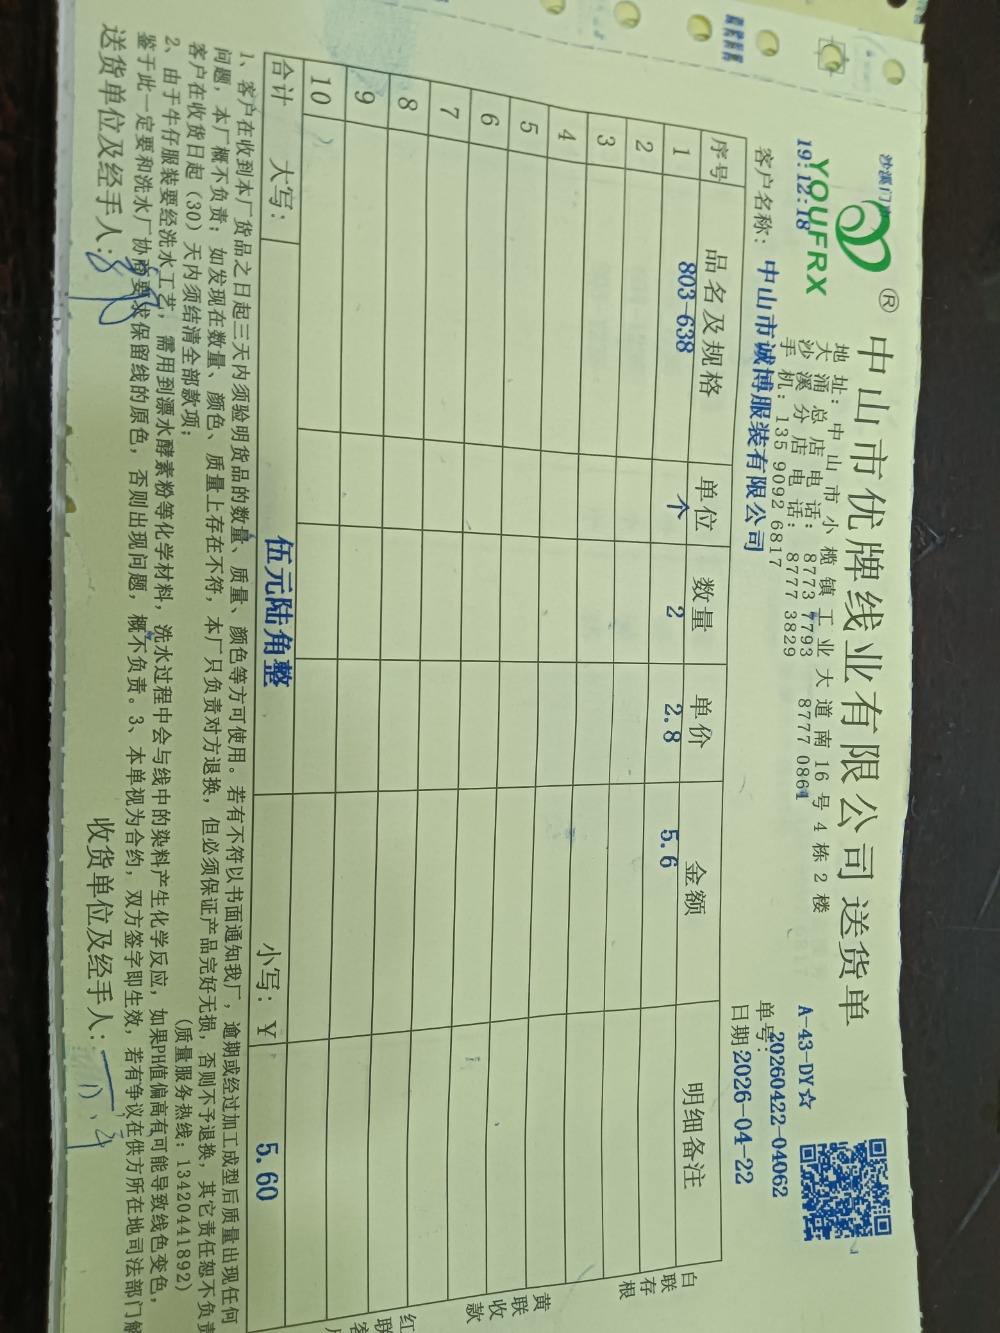 沙溪门
19:12:18
YOUFRX
®
中山市优牌线业有限公司送货单
地址：中山市小榄镇工业大道南16号4栋2楼
大涌总店电话：8773 7793 8777 0861
沙溪分店电话：8777 3829
手机：135 9092 6817
A-43-DY☆
单号：20260422-04062
客户名称：中山市诚博服装有限公司
日期2026-04-22
序号 品名及规格 单位 数量 单价 金额 明细备注
1 803-638 个 2 2.8 5.6
2
3
4
5
6
7
8
9
10
合计 大写： 伍元陆角整 小写：￥ 5.60
白联存根
黄联收款
红联客
1、客户在收到本厂货品之日起三天内须验明货品的数量、质量、颜色等方可使用。若有不符以书面通知我厂，逾期或经过加工成型后质量出现任何
问题，本厂概不负责；如发现在数量、颜色、质量上存在不符，本厂只负责对方退换，但必须保证产品完好无损，否则不予退换，其它责任恕不负责
客户在收货日起（30）天内须结清全部款项；
（质量服务热线：13420441892）
2、由于牛仔服装要经洗水工艺，需用到漂水酵素粉等化学材料，洗水过程中会与线中的染料产生化学反应，如果PH值偏高有可能导致线色变色，
鉴于此一定要和洗水厂协商要求保留线的原色，否则出现问题，概不负责。3、本单视为合约，双方签字即生效，若有争议在供方所在地司法部门解
送货单位及经手人：
收货单位及经手人：